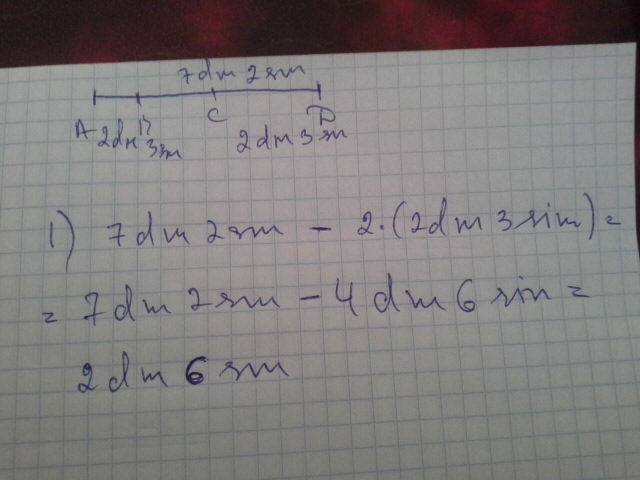 7dm 2sm
A B C D
2dm 3sm 2dm 3sm
1) 7dm 2sm - 2·(2dm 3sm) =
= 7dm 2sm - 4dm 6sm =
2dm 6sm